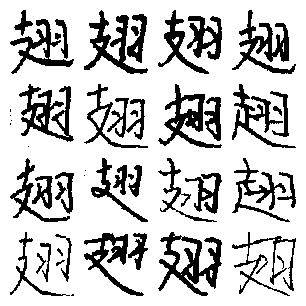 翅翅翅翅
翅翅翅翅
翅翅翅翅
翅翅翅翅